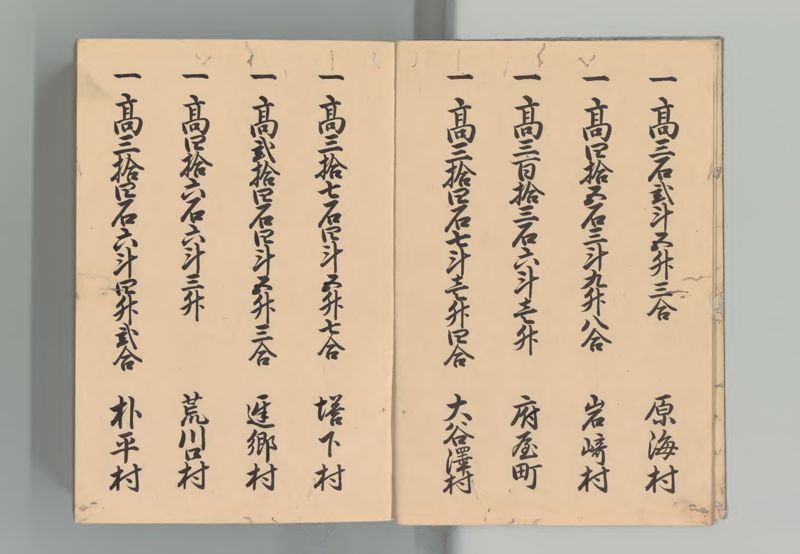 一 高三石弐斗五升三合 原海村
一 高四拾五石三斗九升八合 岩﨑村
一 高三百拾三石六斗壱升 府屋町
一 高三拾四石七斗壱升四合 大谷澤村
一 高三拾七石四斗五升七合 塔下村
一 高弐拾四石四斗五升三合 遅郷村
一 高四拾六石六斗三升 荒川口村
一 高三拾四石六斗四升弐合 朴平村